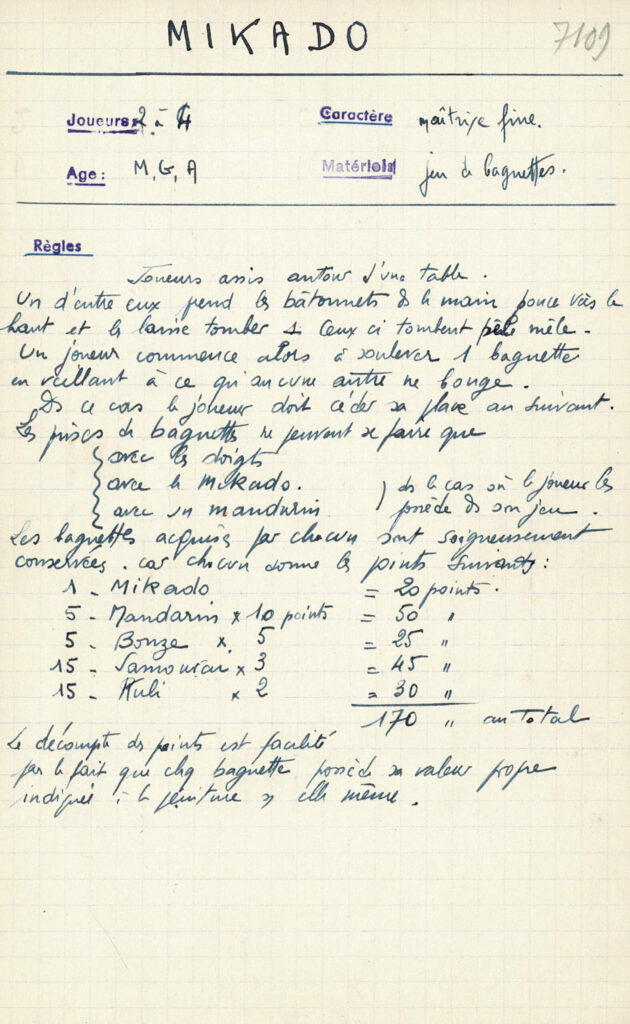 MIKADO
7109
Joueurs: 2 à 4
Caractère maîtrise fine.
Age: M, G, A
Matériels jeu de baguettes.
Règles
Joueurs assis autour d'une table.
Un d'entre eux prend les bâtonnets ds la main pouce vers le
haut et les laisse tomber Ceux ci tombent pêle mêle.
Un joueur commence alors à soulever 1 baguette
en veillant à ce qu'aucune autre ne bouge.
Ds ce cas le joueur doit céder sa place au suivant.
Les prises de baguettes ne peuvent se faire que
avec les doigts
avec le Mikado.
avec un mandarin
) ds le cas où le joueur les
possède ds son jeu.
Les baguettes acquises par chacun sont soigneusement
conservées. car chacun donne les points suivants:
1 - Mikado = 20 points.
5 - Mandarin x 10 points = 50 "
5 - Bonze x 5 = 25 "
15 - Samouraï x 3 = 45 "
15 - Kuli x 2 = 30 "
170 " au Total
Le décompte des points est facilité
par le fait que chq baguette possède sa valeur propre
indiquée la peinture elle même.